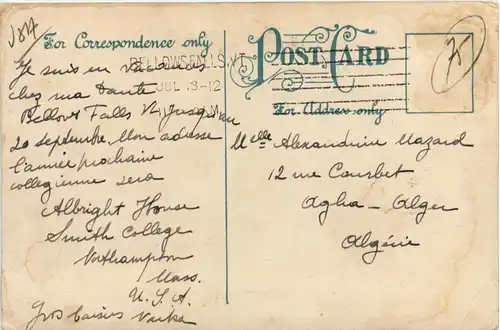 For Correspondence only
POST CARD
For Address only
BELLOWS FALLS, VT
JUL 8-12
Je suis en vacances
chez ma tante
Bellows Falls Vt jusqu'au
20 septembre. Mon adresse
l'année prochaine
collegienne sera
Albright House
Smith College
Northampton
Mass.
U. S. A.
Gros baisers
Melle Alexandrine Mazard
12 rue Courbet
Agha - Alger
Algérie